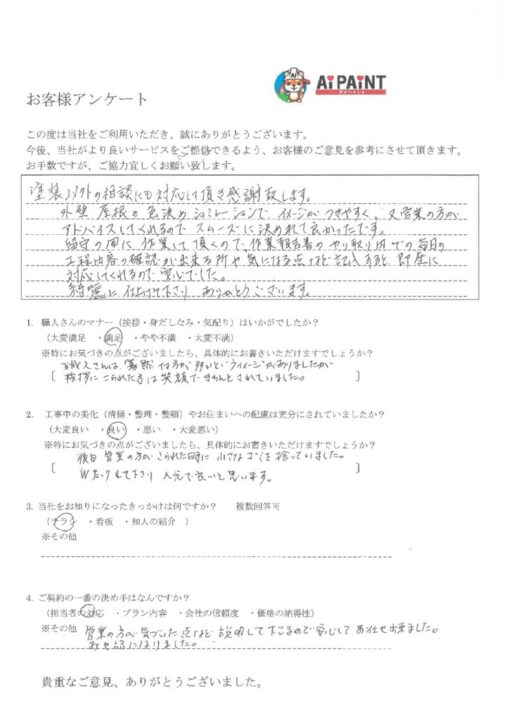 Ai PAiNT
アイペイント
お客様アンケート
この度は当社をご利用いただき、誠にありがとうございます。
今後、当社がより良いサービスをご提供できるよう、お客様のご意見を参考にさせて頂きます。
お手数ですが、ご協力宜しくお願い致します。
塗装以外の相談にも対応して頂き感謝致します。
外壁 屋根の色決め シュミレーションで イメージがつきやすく。又営業の方が
アドバイスしてくれるので スムーズに決めれて良かったです。
留守の間に 作業して頂くので、作業報告書の やり取り 内での 毎日の
工程内容の確認が出来る所や 気になる点など 記入すると 即座に
対応してくれるので 安心でした。
綺麗に 仕上げて下さり ありがとうございます。
1. 職人さんのマナー（挨拶・身だしなみ・気配り）はいかがでしたか？
（大変満足 ・満足 ・やや不満 ・大変不満）
※特にお気づきの点がございましたら、具体的にお書きいただけますでしょうか？
職人さんは 寡黙な方が 多いというイメージがありましたが
挨拶に こられた方は 笑顔で きちんと されていました。
2. 工事中の美化（清掃・整理・整頓）やお住まいへの配慮は充分にされていましたか？
（大変良い ・良い ・悪い ・大変悪い）
※特にお気づきの点がございましたら、具体的にお書きいただけますでしょうか？
後日 営業の方が こられた時に 小さな ゴミを 拾っていました。
Wチェックして下さり 入念で良いと思います。
3. 当社をお知りになったきっかけは何ですか？ 複数回答可
（チラシ ・看板 ・知人の紹介 ）
※その他
4. ご契約の一番の決め手はなんですか？
（担当者の対応 ・プラン内容 ・会社の信頼度 ・価格の納得性）
※その他 営業の方が 気づいた点など 説明して下さるので 安心して お任せ出来ました。
お世話になりました。
貴重なご意見、ありがとうございました。